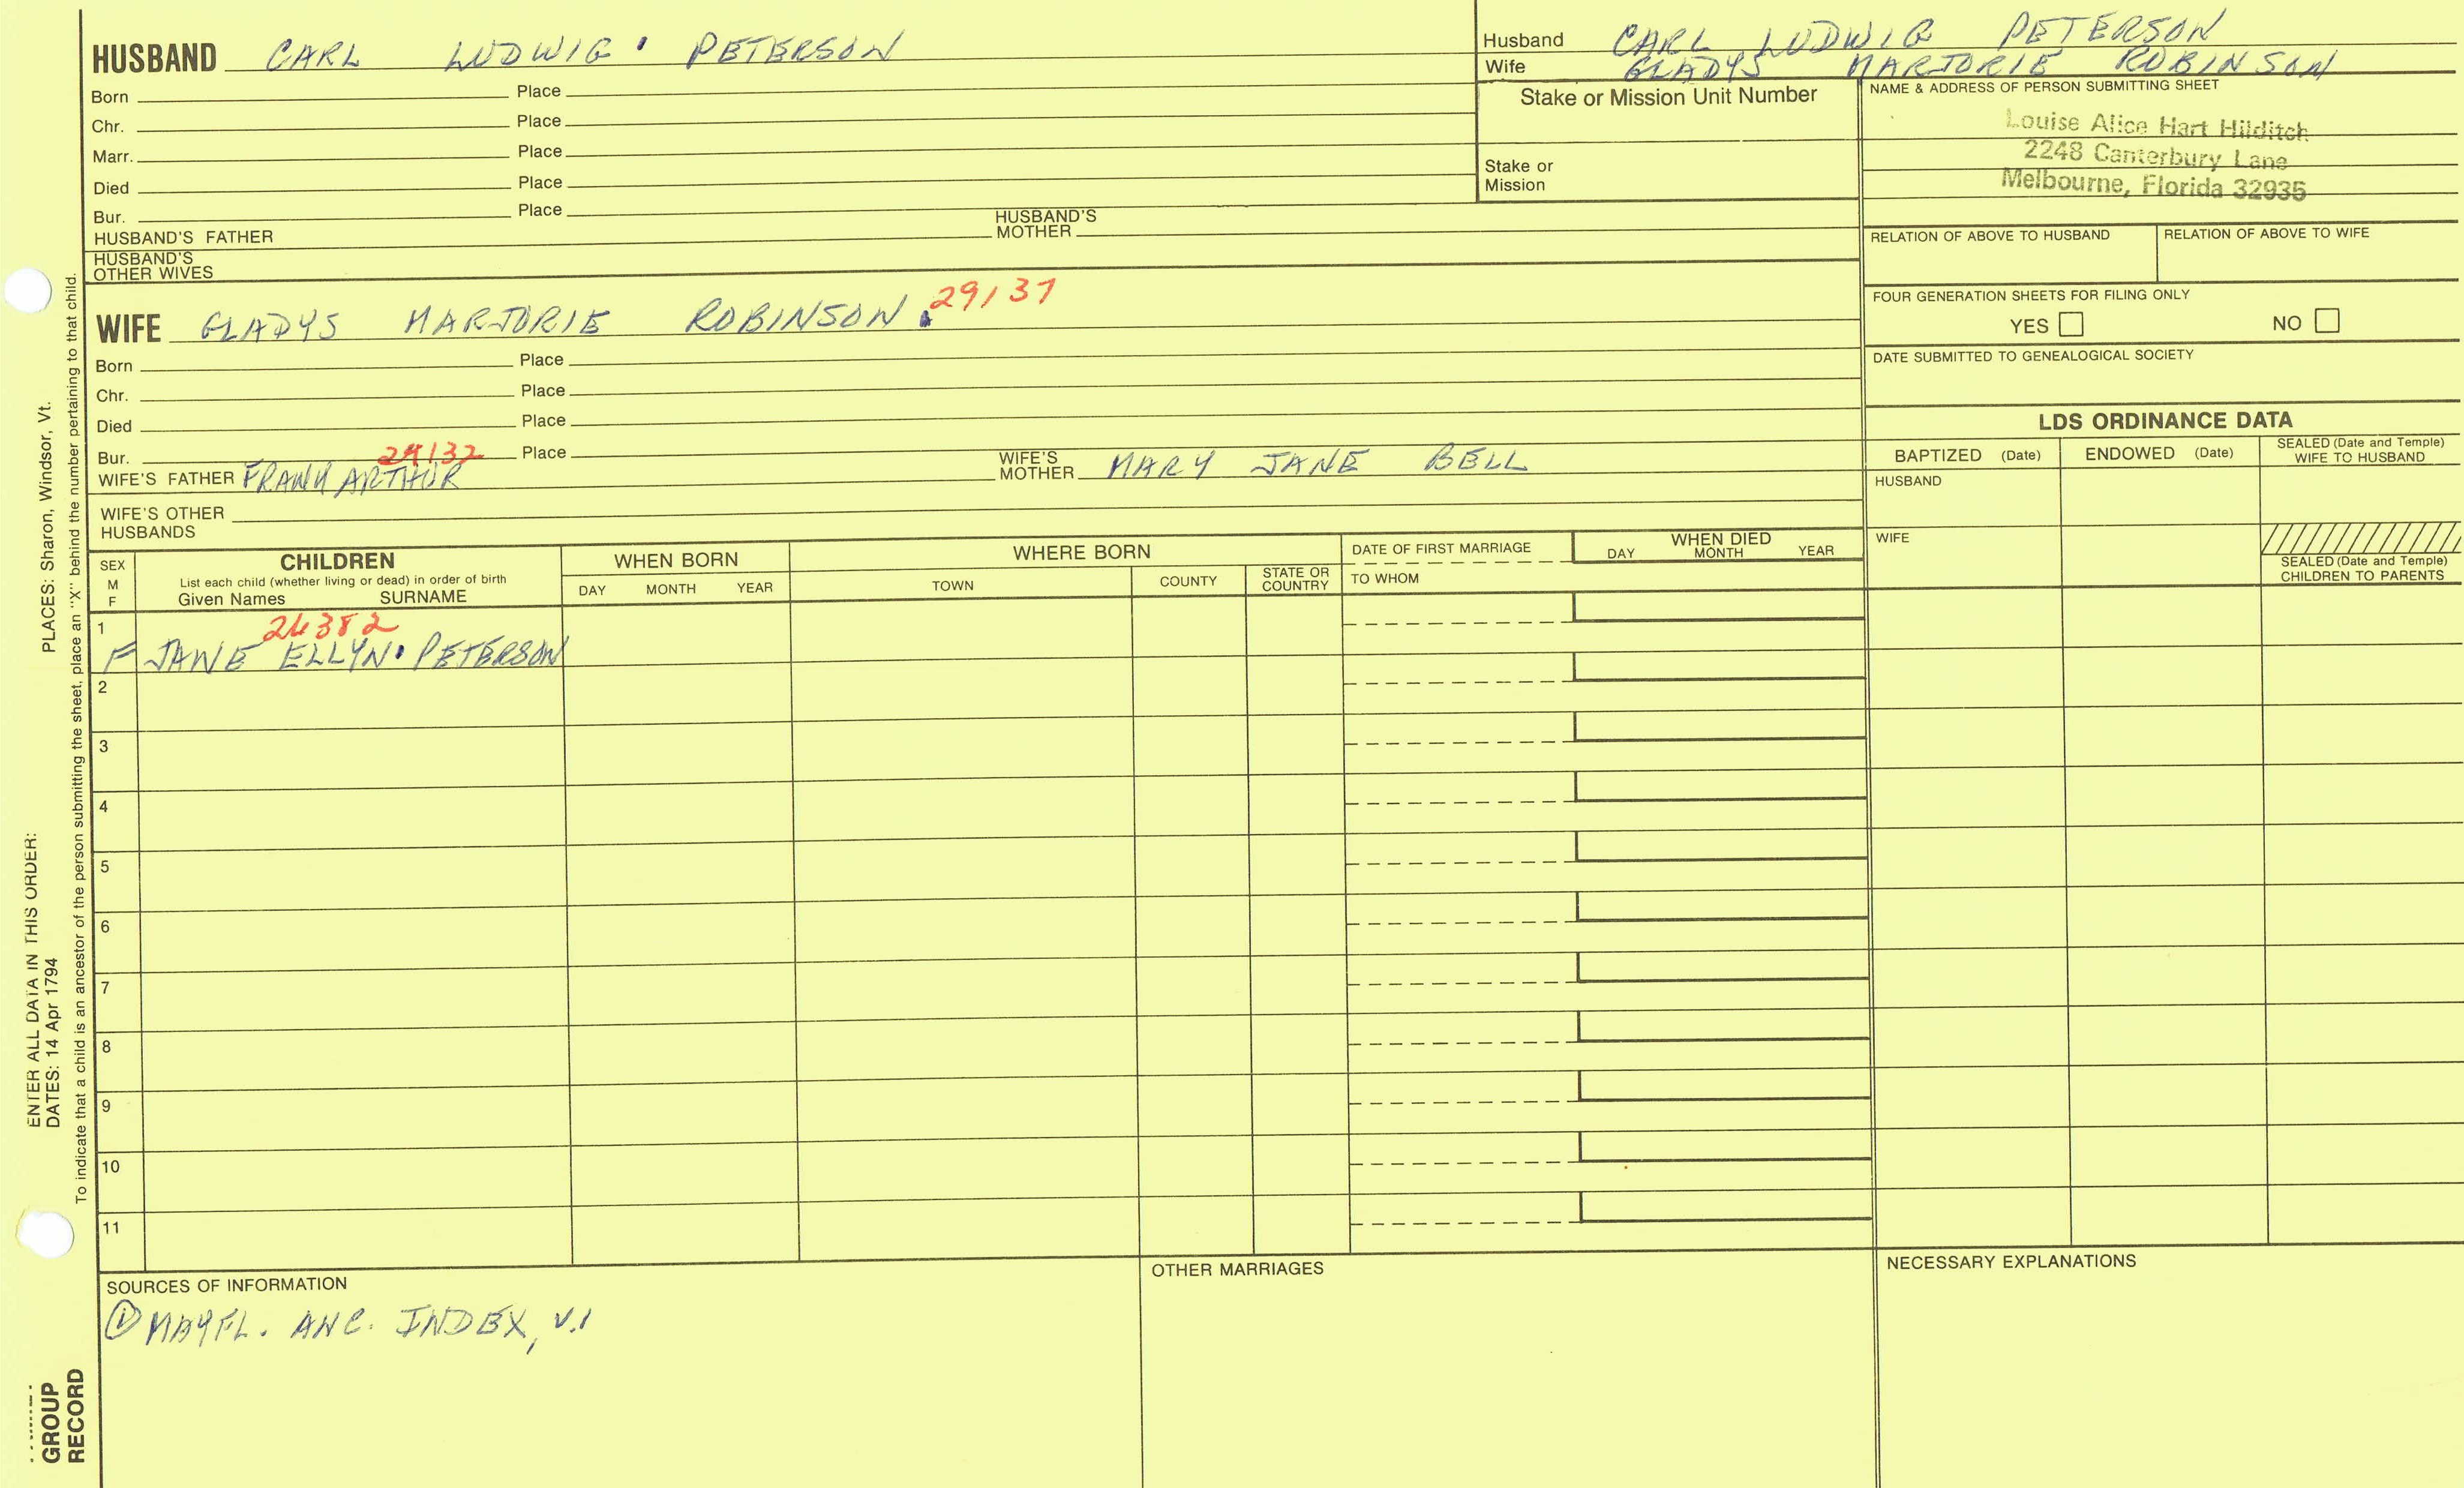 HUSBAND CARL LUDWIG PETERSON
Born Place
Chr. Place
Marr. Place
Died Place
Bur. Place
HUSBAND'S FATHER HUSBAND'S MOTHER
HUSBAND'S OTHER WIVES
Husband CARL LUDWIG PETERSON
Wife GLADYS MARJORIE ROBINSON
Stake or Mission Unit Number
Stake or Mission
NAME & ADDRESS OF PERSON SUBMITTING SHEET
Louise Alice Hart Hilditch
2248 Canterbury Lane
Melbourne, Florida 32935
RELATION OF ABOVE TO HUSBAND RELATION OF ABOVE TO WIFE
FOUR GENERATION SHEETS FOR FILING ONLY
YES NO
DATE SUBMITTED TO GENEALOGICAL SOCIETY
29137
WIFE GLADYS MARJORIE ROBINSON
Born Place
Chr. Place
Died Place
Bur. Place
29132
WIFE'S FATHER FRANK ARTHUR WIFE'S MOTHER MARY JANE BELL
WIFE'S OTHER HUSBANDS
LDS ORDINANCE DATA
BAPTIZED (Date) ENDOWED (Date) SEALED (Date and Temple) WIFE TO HUSBAND
HUSBAND
WIFE
SEALED (Date and Temple) CHILDREN TO PARENTS
SEX M F
CHILDREN
List each child (whether living or dead) in order of birth
Given Names SURNAME
WHEN BORN
DAY MONTH YEAR
WHERE BORN
TOWN COUNTY STATE OR COUNTRY
DATE OF FIRST MARRIAGE
TO WHOM
WHEN DIED
DAY MONTH YEAR
1
26382
F JANE ELLYN PETERSON
2
3
4
5
6
7
8
9
10
11
SOURCES OF INFORMATION
① MAYFL. ANC. INDEX, V.1
OTHER MARRIAGES
NECESSARY EXPLANATIONS
ENTER ALL DATA IN THIS ORDER:
DATES: 14 Apr 1794 PLACES: Sharon, Windsor, Vt.
To indicate that a child is an ancestor of the person submitting the sheet, place an "X" behind the number pertaining to that child.
GROUP
RECORD